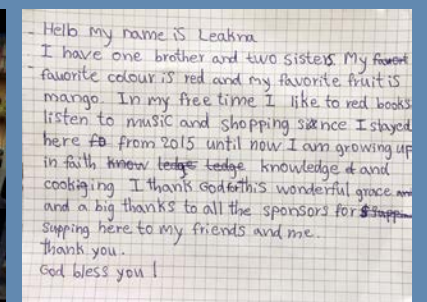 - Hello my name is Leakna
- I have one brother and two sisters. My favort
favorite colour is red and my favorite fruit is
mango. In my free time I like to red books
listen to music and shopping since I stayed
here fo from 2015 until now I am growing up
in faith know ledge tedge knowledge d and
cookiging I thank God for this wonderful grace
and a big thanks to all the sponsors for supp
supping here to my friends and me.
thank you.
God bless you!